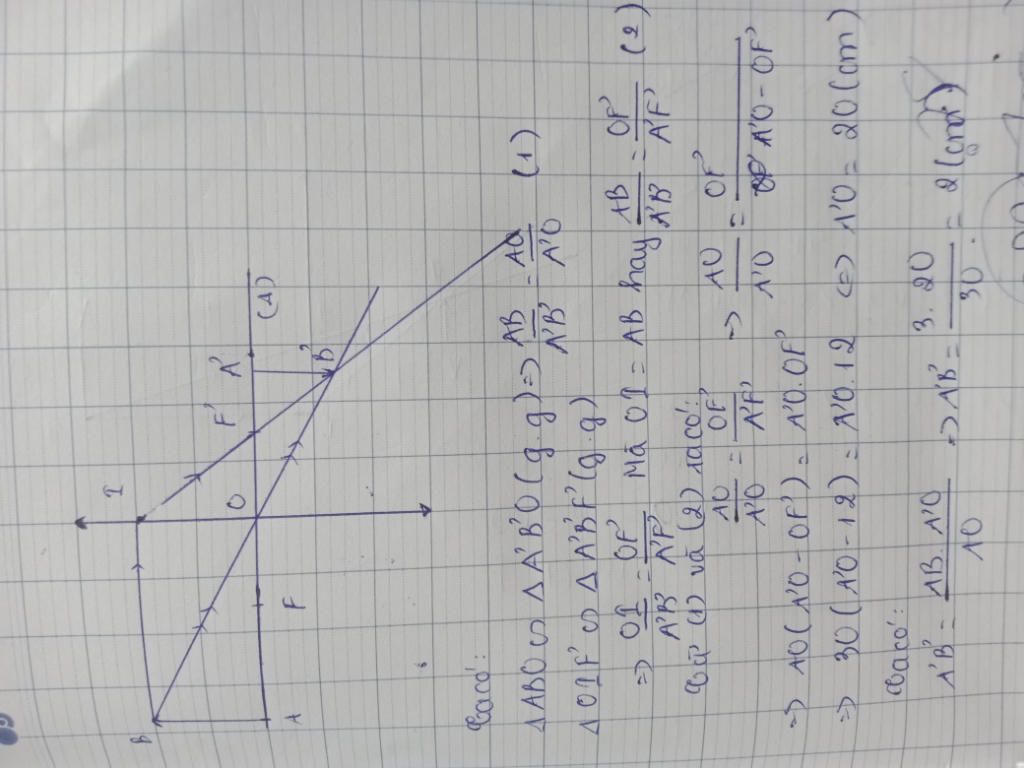 B
I
F
O
F'
A'
(Δ)
A
B'
Ta có:
ΔABO ∽ ΔA'B'O (g.g) => AB/A'B' = AO/A'O (1)
ΔOIF' ∽ ΔA'B'F' (g.g)
=> OI/A'B' = OF'/A'F' Mà OI = AB hay AB/A'B' = OF'/A'F' (2)
Từ (1) và (2) ta có:
AO/A'O = OF'/A'F' => AO/A'O = OF'/A'O - OF'
=> AO (A'O - OF') = A'O . OF'
=> 30 (A'O - 12) = A'O . 12 <=> A'O = 20 (cm)
Ta có:
A'B' = AB . A'O/AO => A'B' = 3 . 20/30 = 2 (cm)